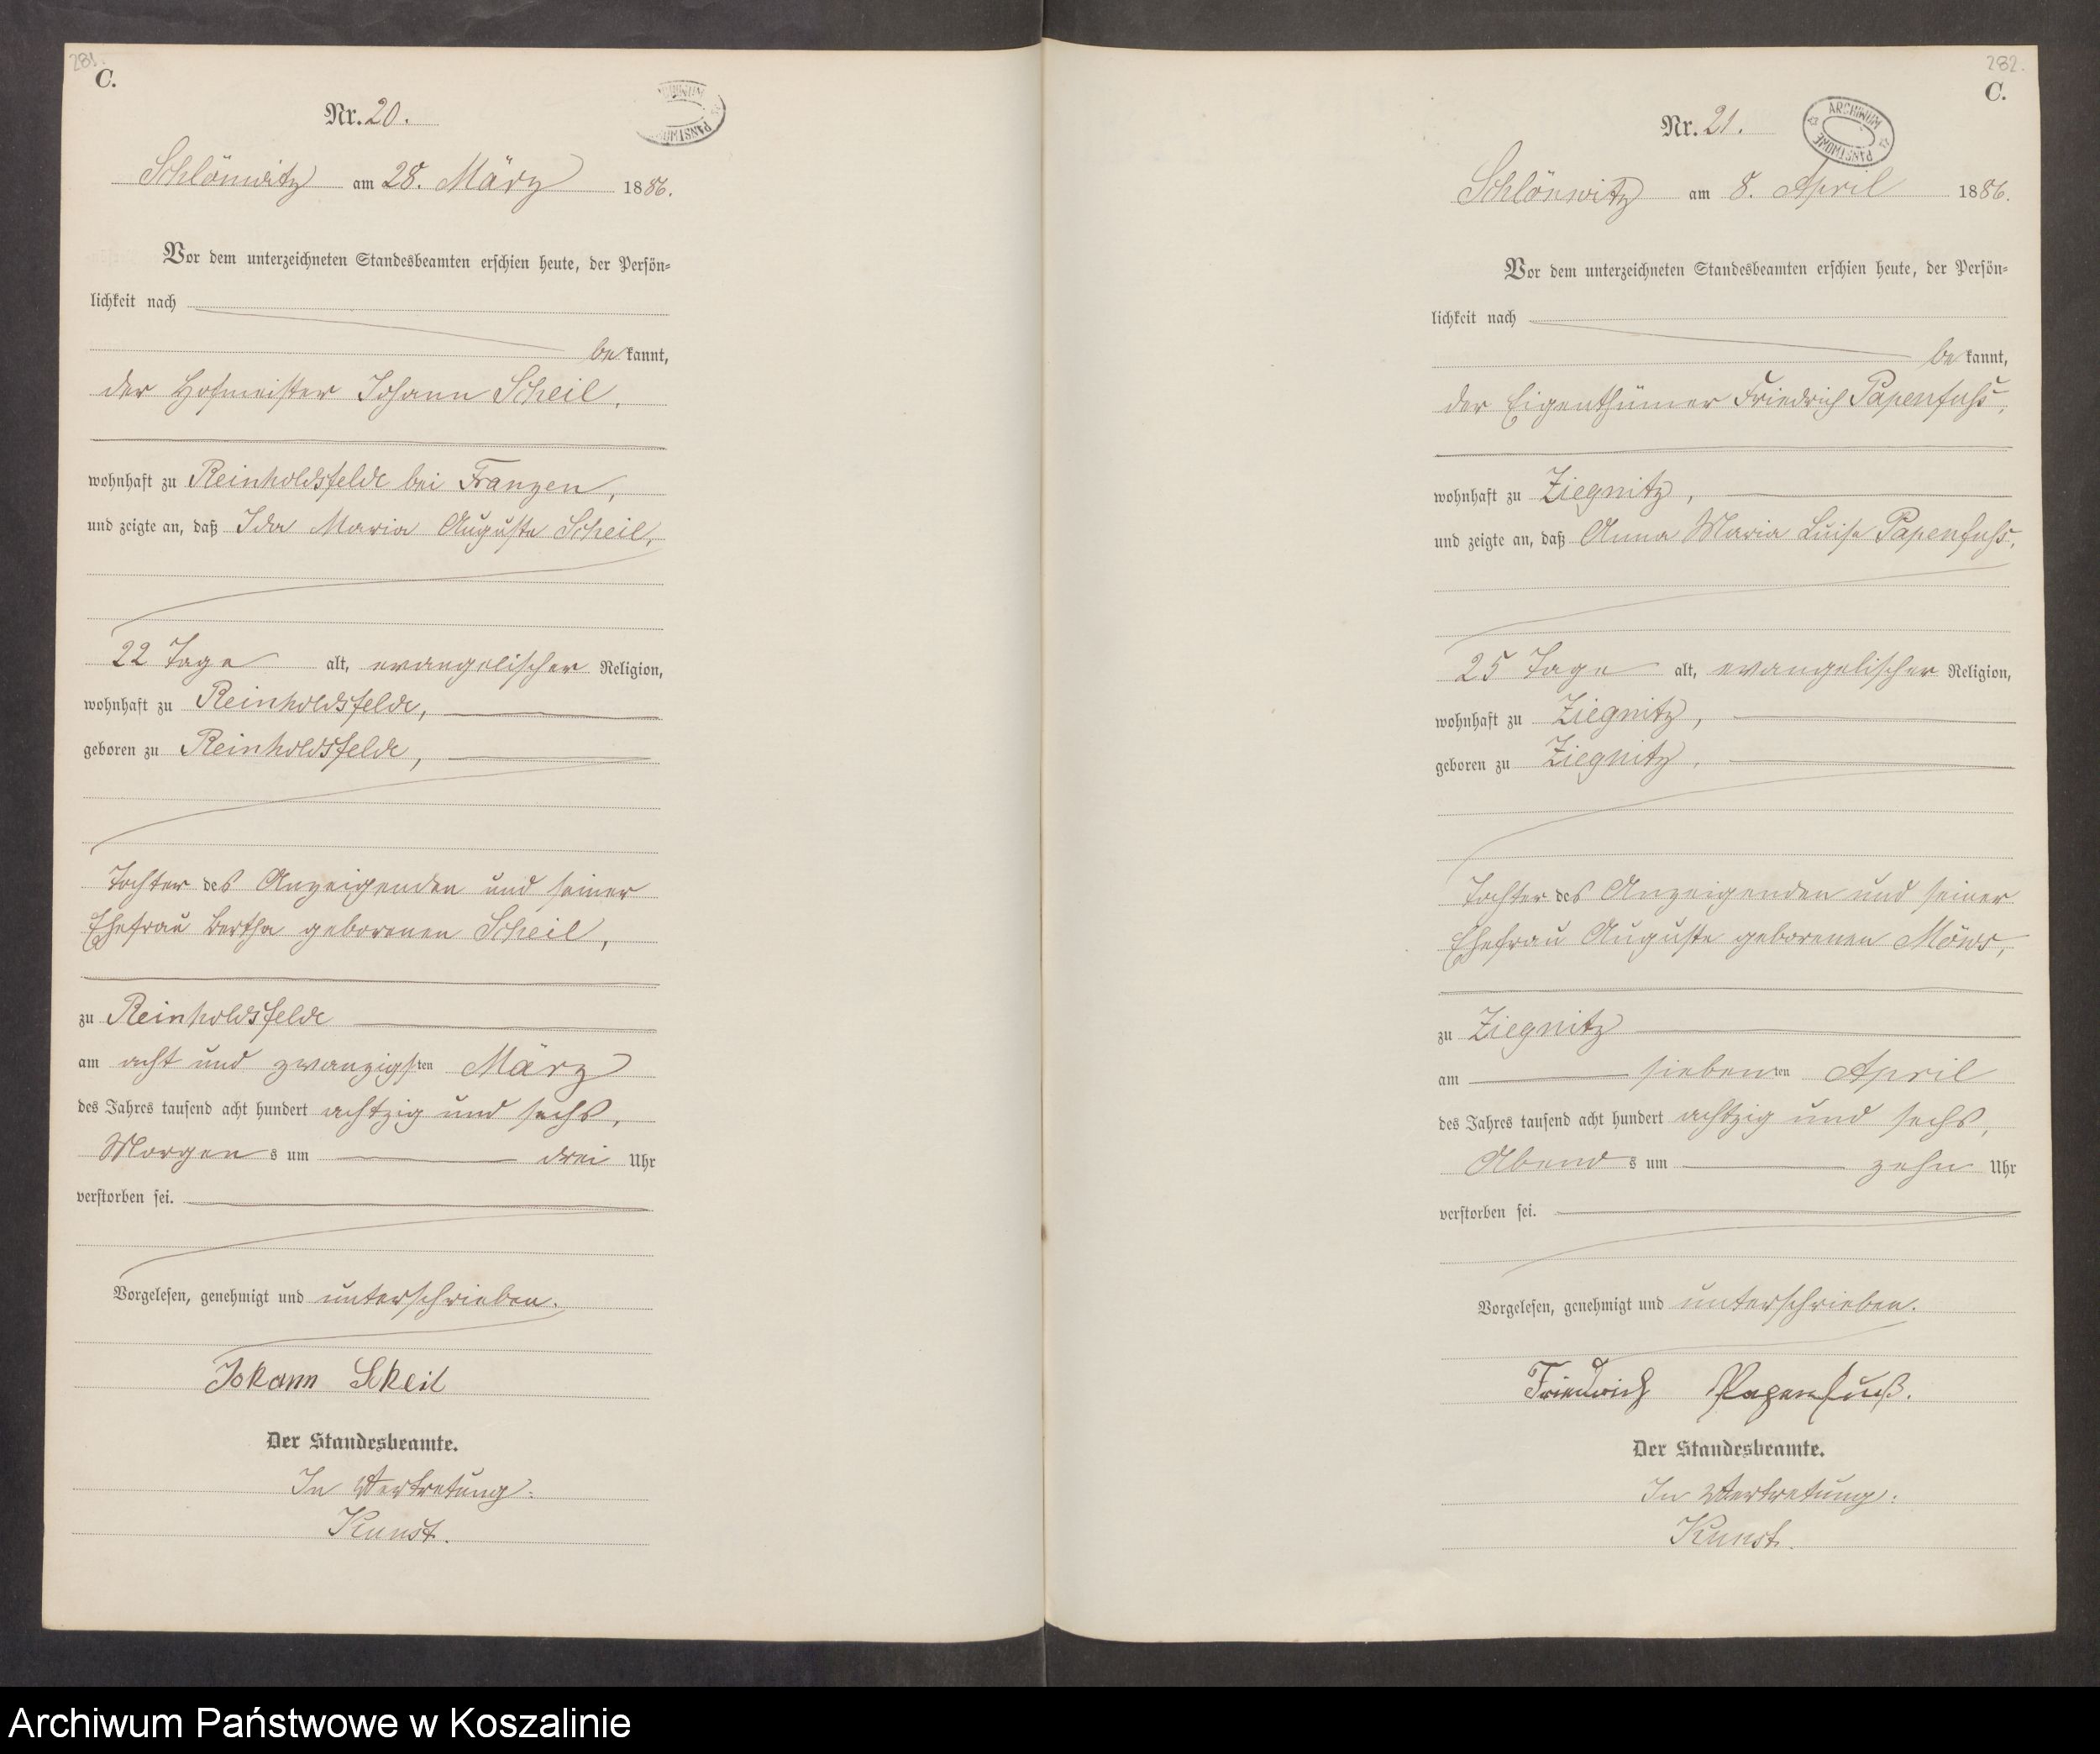 281.
C.
Nr. 20.
Schlönwitz am 28. März 1886.
Vor dem unterzeichneten Standesbeamten erschien heute, der Persön=
lichkeit nach
be kannt,
der Hofmeister Johann Scheil,
wohnhaft zu Reinholdsfelde bei Franzen,
und zeigte an, daß Ida Maria Auguste Scheil,
22 Tage alt, evangelischer Religion,
wohnhaft zu Reinholdsfelde,
geboren zu Reinholdsfelde,
Tochter des Anzeigenden und seiner
Ehefrau Bertha geborenen Scheil,
zu Reinholdsfelde
am acht und zwanzigsten März
des Jahres tausend acht hundert achtzig und sechs,
Morgens um drei Uhr
verstorben sei.
Vorgelesen, genehmigt und unterschrieben.
Johann Scheil
Der Standesbeamte.
In Vertretung:
Kunst.
282.
C.
Nr. 21.
ARCHIWUM
PAŃSTWOWE
Schlönwitz am 8. April 1886.
Vor dem unterzeichneten Standesbeamten erschien heute, der Persön=
lichkeit nach
be kannt,
der Eigenthümer Friedrich Papenfuhs,
wohnhaft zu Ziegnitz,
und zeigte an, daß Anna Maria Luise Papenfuhs,
25 Tage alt, evangelischer Religion,
wohnhaft zu Ziegnitz,
geboren zu Ziegnitz,
Tochter des Anzeigenden und seiner
Ehefrau Auguste geborenen Möws,
zu Ziegnitz
am siebenten April
des Jahres tausend acht hundert achtzig und sechs,
Abends um zehn Uhr
verstorben sei.
Vorgelesen, genehmigt und unterschrieben.
Friedrich Papenfuß.
Der Standesbeamte.
In Vertretung:
Kunst.
Archiwum Państwowe w Koszalinie